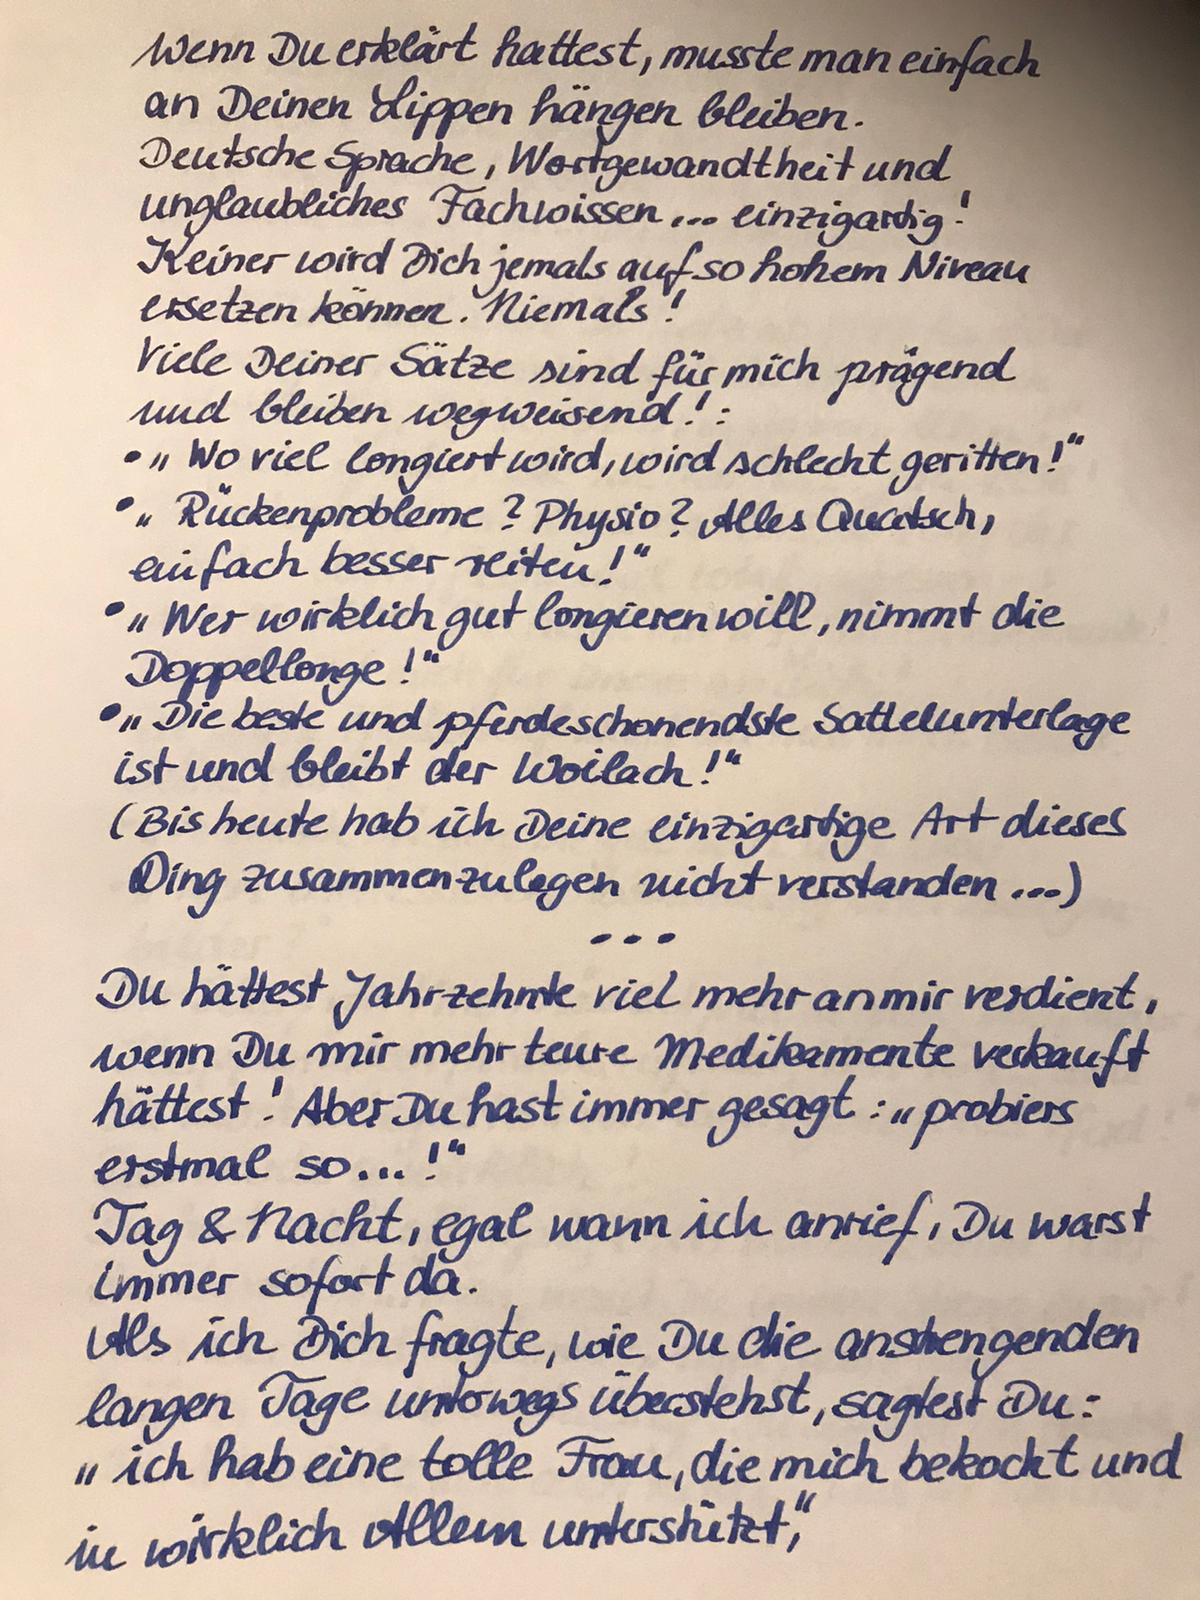 Wenn Du erklärt hattest, musste man einfach
an Deinen Lippen hängen bleiben.
Deutsche Sprache, Wortgewandtheit und
unglaubliches Fachwissen... einzigartig!
Keiner wird Dich jemals auf so hohem Niveau
ersetzen können. Niemals!
Viele Deiner Sätze sind für mich prägend
und bleiben wegweisend!:
• „Wo viel longiert wird, wird schlecht geritten!“
• „Rückenprobleme? Physio? Alles Quatsch,
einfach besser reiten!“
• „Wer wirklich gut longieren will, nimmt die
Doppellonge!“
• „Die beste und pferdeschonendste Sattelunterlage
ist und bleibt der Woilach!“
(Bis heute hab ich Deine einzigartige Art dieses
Ding zusammenzulegen nicht verstanden...)
...
Du hättest Jahrzehnte viel mehr an mir verdient,
wenn Du mir mehr teure Medikamente verkauft
hättest! Aber Du hast immer gesagt: „probiers
erstmal so...!“
Tag & Nacht, egal wann ich anrief, Du warst
immer sofort da.
Als ich Dich fragte, wie Du die anstrengenden
langen Tage unterwegs überstehst, sagtest Du:
„ich hab eine tolle Frau, die mich bekocht und
in wirklich Allem unterstützt,“